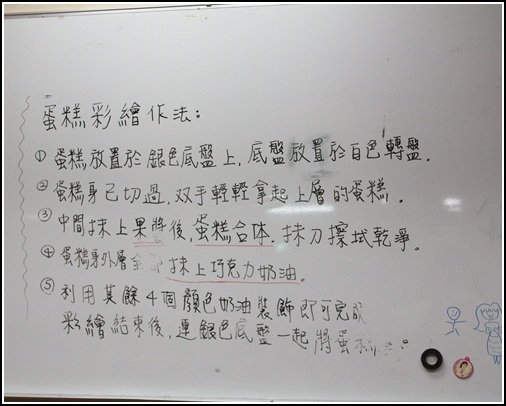 蛋糕彩繪作法：
① 蛋糕放置於銀色底盤上，底盤放置於白色轉盤．
② 蛋糕身已切過，双手輕輕拿起上層的蛋糕．
③ 中間抹上果醬後，蛋糕合体．抹刀擦拭乾淨。
④ 蛋糕身外層全部抹上巧克力奶油。
⑤ 利用其餘4個顏色奶油裝飾即可完成
彩繪結束後，連銀色底盤一起將蛋糕